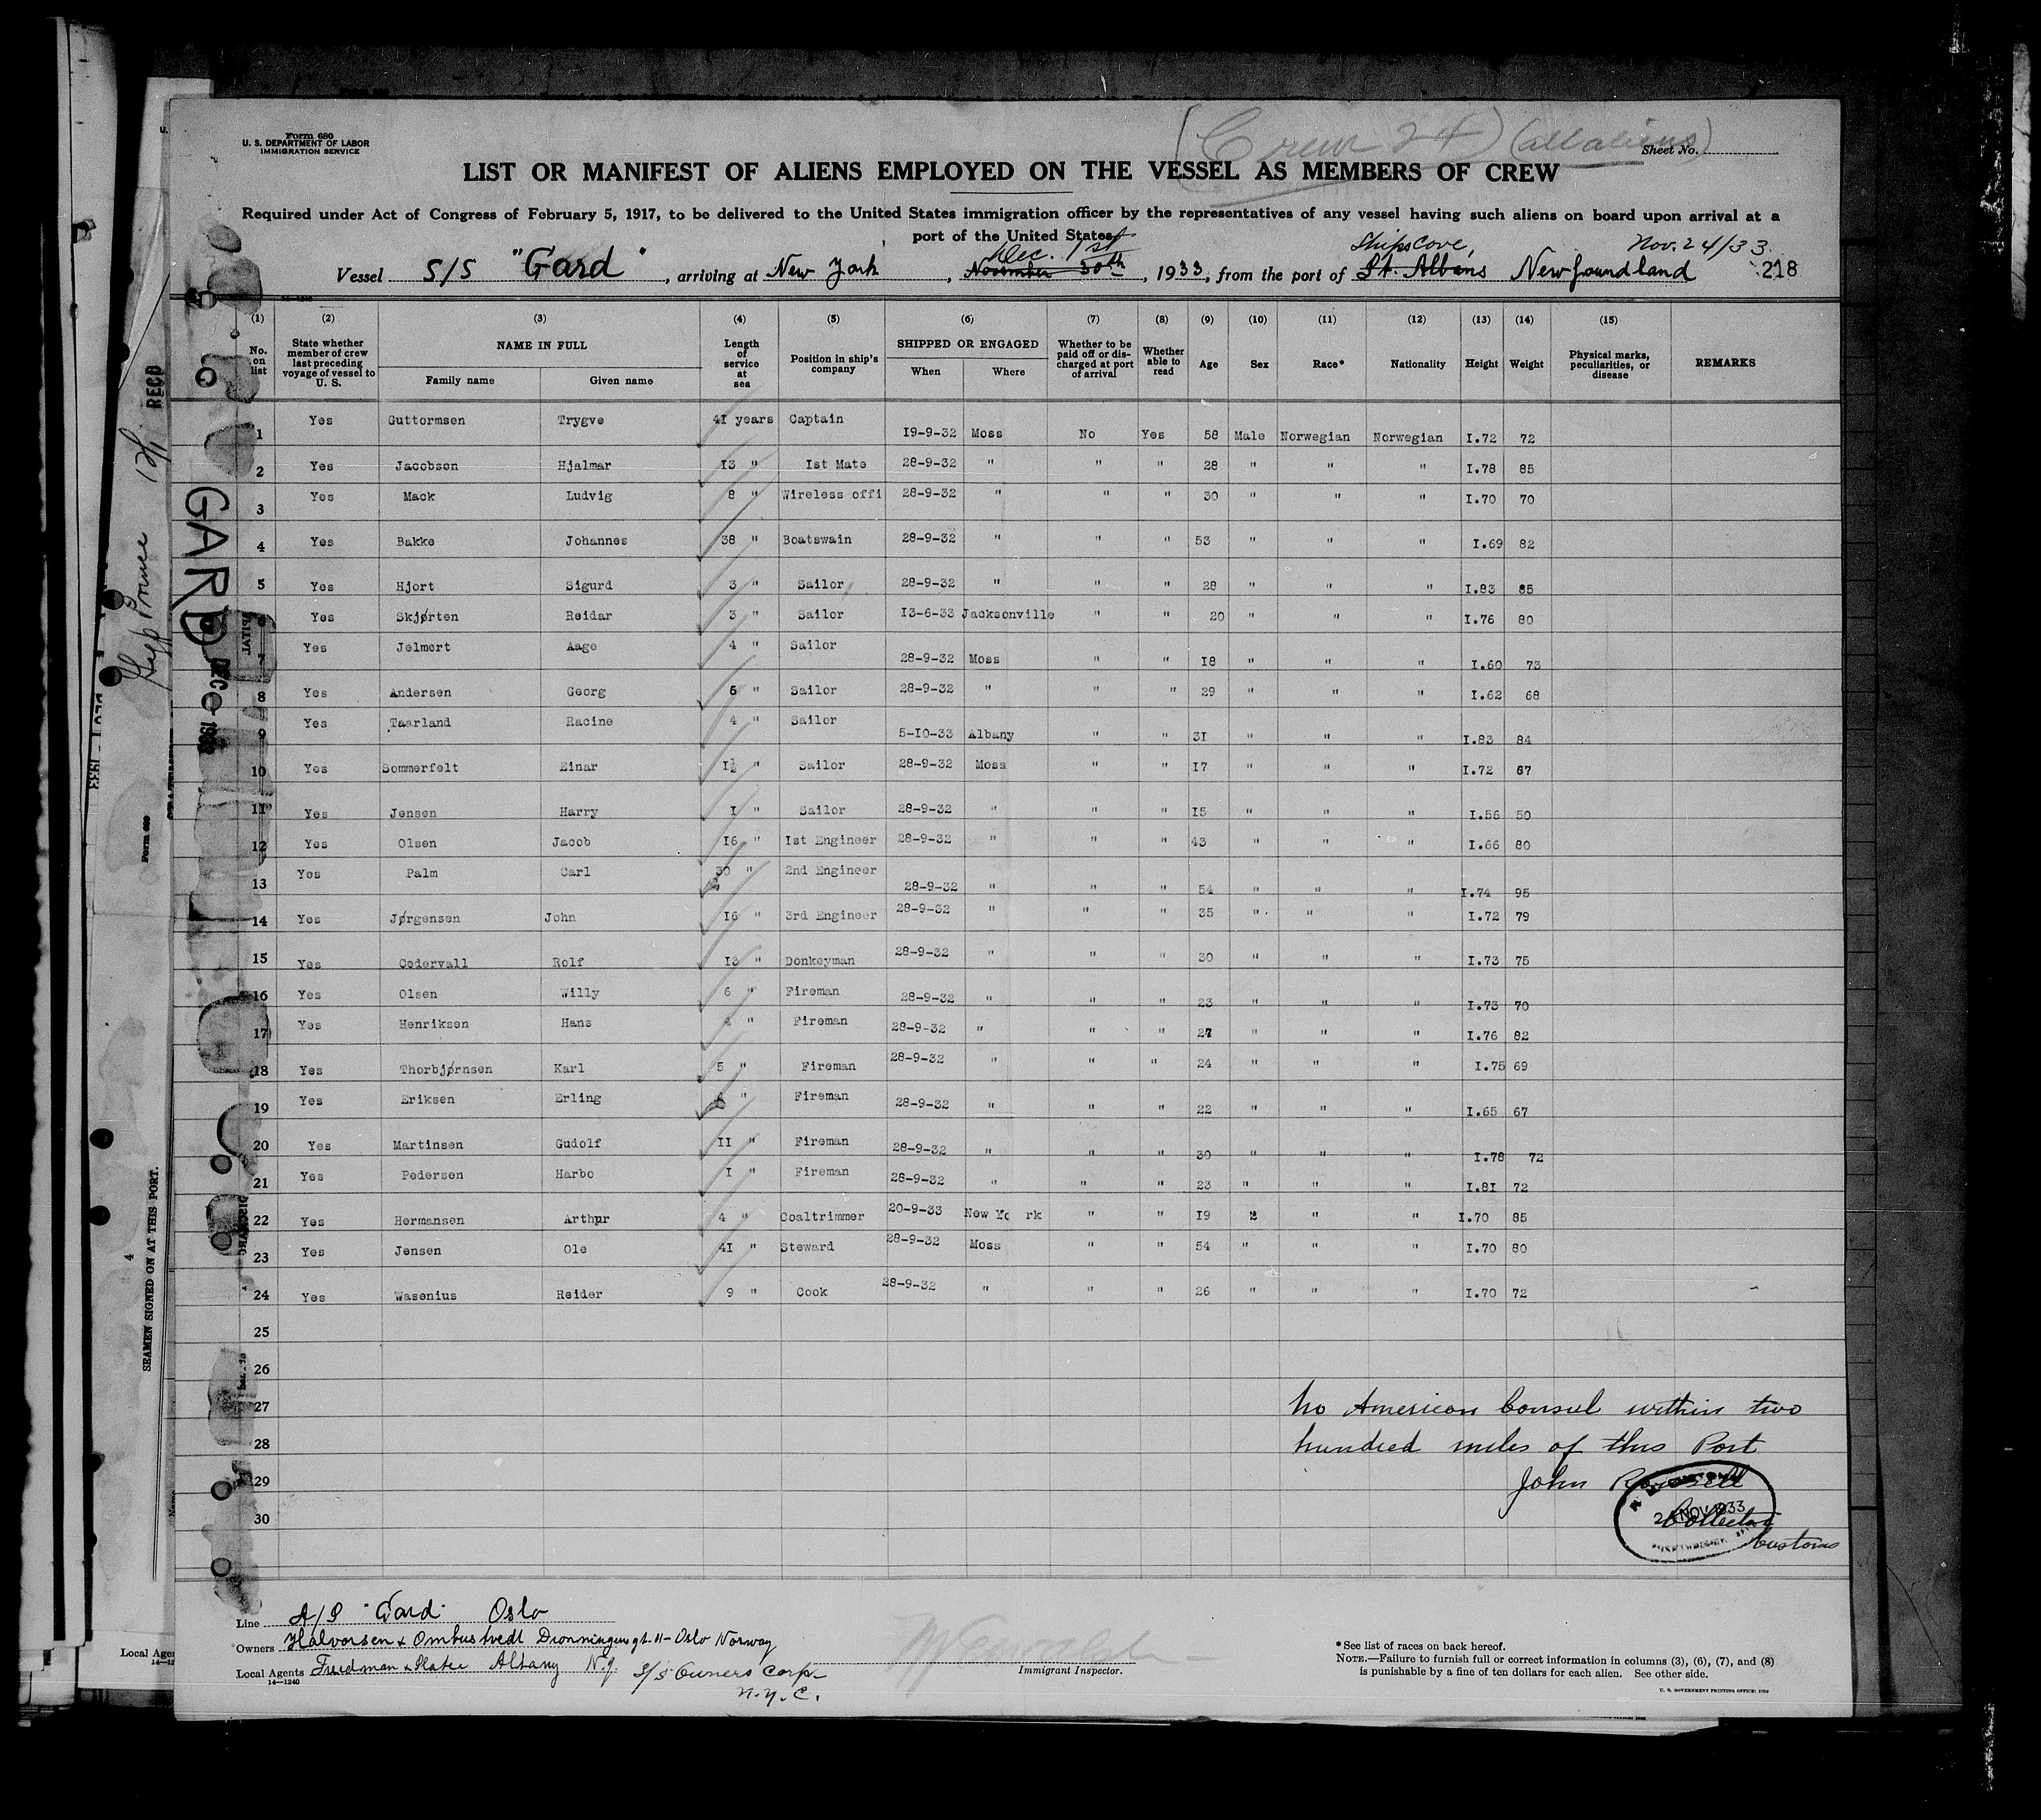 Form 680
U. S. DEPARTMENT OF LABOR
IMMIGRATION SERVICE
(Crew 24) (all aliens)
Sheet No.
LIST OR MANIFEST OF ALIENS EMPLOYED ON THE VESSEL AS MEMBERS OF CREW
Required under Act of Congress of February 5, 1917, to be delivered to the United States immigration officer by the representatives of any vessel having such aliens on board upon arrival at a
port of the United States
Dec. 1st Ships Cove, Nov. 24/33
Vessel S/S "Gard", arriving at New York, November 30th, 1933, from the port of St. Albans Newfoundland 218
(1) (2) (3) (4) (5) (6) (7) (8) (9) (10) (11) (12) (13) (14) (15)
No. on list
State whether member of crew last preceding voyage of vessel to U. S.
NAME IN FULL
Family name Given name
Length of service at sea
Position in ship's company
SHIPPED OR ENGAGED
When Where
Whether to be paid off or discharged at port of arrival
Whether able to read
Age Sex Race* Nationality Height Weight
Physical marks, peculiarities, or disease
REMARKS
1 Yes Guttormsen Trygve 41 years Captain 19-9-32 Moss No Yes 58 Male Norwegian Norwegian 1.72 72
2 Yes Jacobson Hjalmar 13 " 1st Mate 28-9-32 " " " 28 " " " 1.78 85
3 Yes Mack Ludvig 8 " Wireless offi 28-9-32 " " " 30 " " " 1.70 70
4 Yes Bakke Johannes 38 " Boatswain 28-9-32 " " " 53 " " " 1.69 82
5 Yes Hjort Sigurd 3 " Sailor 28-9-32 " " " 28 " " " 1.83 85
6 Yes Skjørten Reidar 3 " Sailor 13-6-33 Jacksonville " " 20 " " " 1.76 80
7 Yes Jelmert Aage 4 " Sailor 28-9-32 Moss " " 18 " " " 1.60 73
8 Yes Andersen Georg 6 " Sailor 28-9-32 " " " 29 " " " 1.62 68
9 Yes Taarland Racine 4 " Sailor 5-10-33 Albany " " 31 " " " 1.83 84
10 Yes Sommerfelt Einar 1½ " Sailor 28-9-32 Moss " " 17 " " " 1.72 67
11 Yes Jensen Harry 1 " Sailor 28-9-32 " " " 15 " " " 1.56 50
12 Yes Olsen Jacob 16 " 1st Engineer 28-9-32 " " " 43 " " " 1.66 80
13 Yes Palm Carl 30 " 2nd Engineer 28-9-32 " " " 54 " " " 1.74 95
14 Yes Jørgensen John 16 " 3rd Engineer 28-9-32 " " " 35 " " " 1.72 79
15 Yes Cedervall Rolf 13 " Donkeyman 28-9-32 " " " 30 " " " 1.73 75
16 Yes Olsen Willy 6 " Fireman 28-9-32 " " " 23 " " " 1.73 70
17 Yes Henriksen Hans 4 " Fireman 28-9-32 " " " 27 " " " 1.76 82
18 Yes Thorbjørnsen Karl 5 " Fireman 28-9-32 " " " 24 " " " 1.75 69
19 Yes Eriksen Erling " Fireman 28-9-32 " " " 22 " " " 1.65 67
20 Yes Martinsen Gudolf 11 " Fireman 28-9-32 " " " 30 " " " 1.78 72
21 Yes Pedersen Harbo 1 " Fireman 28-9-32 " " " 23 " " " 1.81 72
22 Yes Hermansen Arthur 4 " Coaltrimmer 20-9-33 New York " " 19 2 " " 1.70 85
23 Yes Jensen Ole 41 " Steward 28-9-32 Moss " " 54 " " " 1.70 80
24 Yes Wasenius Reider 9 " Cook 28-9-32 " " " 26 " " " 1.70 72
25
26
27
28
29
30
No American Consul within two
hundred miles of this Port
John
Collector
Customs
24 NOV 1933
Line A/S "Gard" Oslo
Owners Halvorsen & Ombustvedt Dronningensgt. 11 - Oslo Norway
Local Agents Friedman & Slater Albany N.Y. S/S Owners Corp-
N.Y.C.
14—1240
Immigrant Inspector.
*See list of races on back hereof.
NOTE.—Failure to furnish full or correct information in columns (3), (6), (7), and (8)
is punishable by a fine of ten dollars for each alien. See other side.
U. S. GOVERNMENT PRINTING OFFICE:
GARD
DEC
RECD
Form 680
SEAMEN SIGNED ON AT THIS PORT.
4